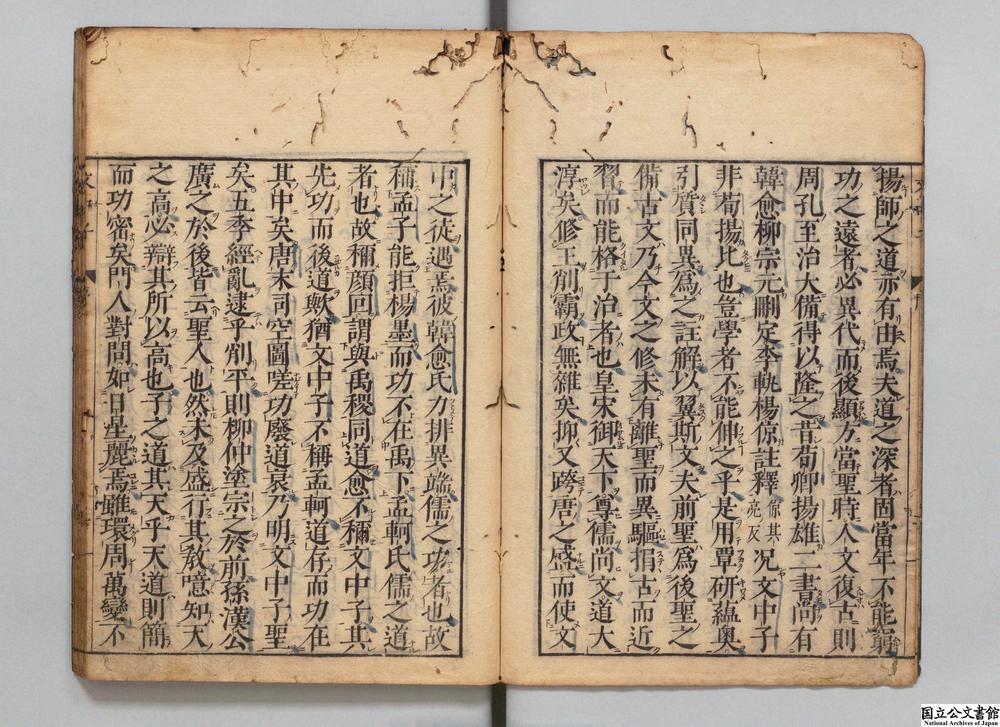 揚師之道亦有由焉夫道之深者固當年不能窮
功之遠者必異代而後顯方當聖時人文復古則
周孔至治大備得以隆之昔荀卿揚雄二書尚有
韓愈柳宗元刪定李軌楊倞註釋倞其亮反況文中子
非荀揚比也豈學者不能伸之乎是用覃研蘊奧
引質同異為之註解以翼斯文夫前聖為後聖之
備古文乃今文之修未有離聖而異驅捐古而近
習而能格于治者也皇宋御天下尊儒尚文道大
淳矣修王削霸政無雜矣抑又跨唐之盛而使文
中之徒遇焉彼韓愈氏力排異端儒之功者也故
稱孟子能拒楊墨而功不在禹下孟軻氏儒之道
者也故稱顏回謂與禹稷同道愈不稱文中子其
先功而後道歟猶文中子不稱孟軻道存而功在
其中矣唐末司空圖嗟功廢道衰乃明文中子聖
矣五季經亂逮乎削平則柳仲塗宗之於前孫漢公
廣之於後皆云聖人也然未及盛行其教噫知天
之高必辯其所以高也子之道其天乎天道則簡
而功密矣門人對問如日星麗焉雖環周萬變不
国立公文書館
National Archives of Japan